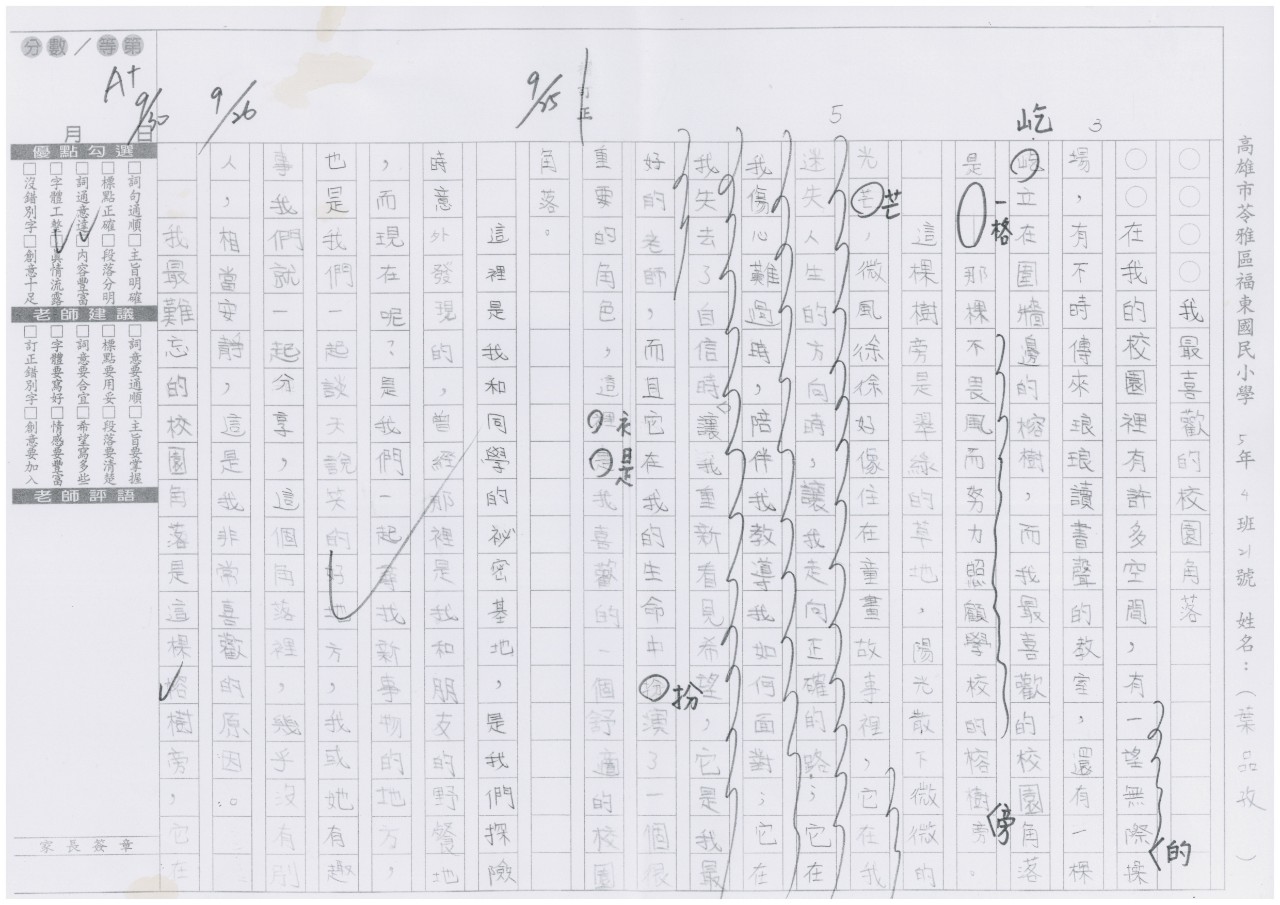 高雄市苓雅區福東國民小學 5年 4班21號 姓名：（葉品攻）
○○○○我最喜歡的校園角落
○○在我的校園裡有許多空間，有一望無際操
的
場，有不時傳來琅琅讀書聲的教室，還有一棵
3
屹立在圍牆邊的榕樹，而我最喜歡的校園角落
屹
是 那棵不畏風而努力照顧學校的榕樹旁。
一格
傍
這棵樹旁是翠綠的草地，陽光散下微微的
光芒，微風徐徐好像住在童畫故事裡，它在我
芒
迷失人生的方向時，讓我走向正確的路；它在
5
我傷心難過時，陪伴我教導我如何面對；它在
我失去了自信時讓我重新看見希望，它是我最
好的老師，而且它在我的生命中扮演了一個很
扮
重要的角色，這裡是我喜歡的一個舒適的校園
衤
是
角落。
訂正
9/25
這裡是我和同學的祕密基地，是我們探險
時意外發現的，曾經那裡是我和朋友的野餐地
，而現在呢？是我們一起尋找新事物的地方，
也是我們一起談天說笑的好地方，我或她有趣
事我們就一起分享，這個角落裡，幾乎沒有別
人，相當安靜，這是我非常喜歡的原因。
9/26
我最難忘的校園角落是這棵榕樹旁，它在
9/30
分數／等第
A+
月 日
優點勾選
□詞句通順□主旨明確
□標點正確□段落分明
□詞通意達□內容豐富
□字體工整□真情流露
□沒錯別字□創意十足
老師建議
□詞意要通順□主旨要掌握
□標點要用妥□段落要清楚
□詞意要合宜□希望寫多些
□字體要寫好□情感要豐富
□訂正錯別字□創意要加入
老師評語
家長簽章